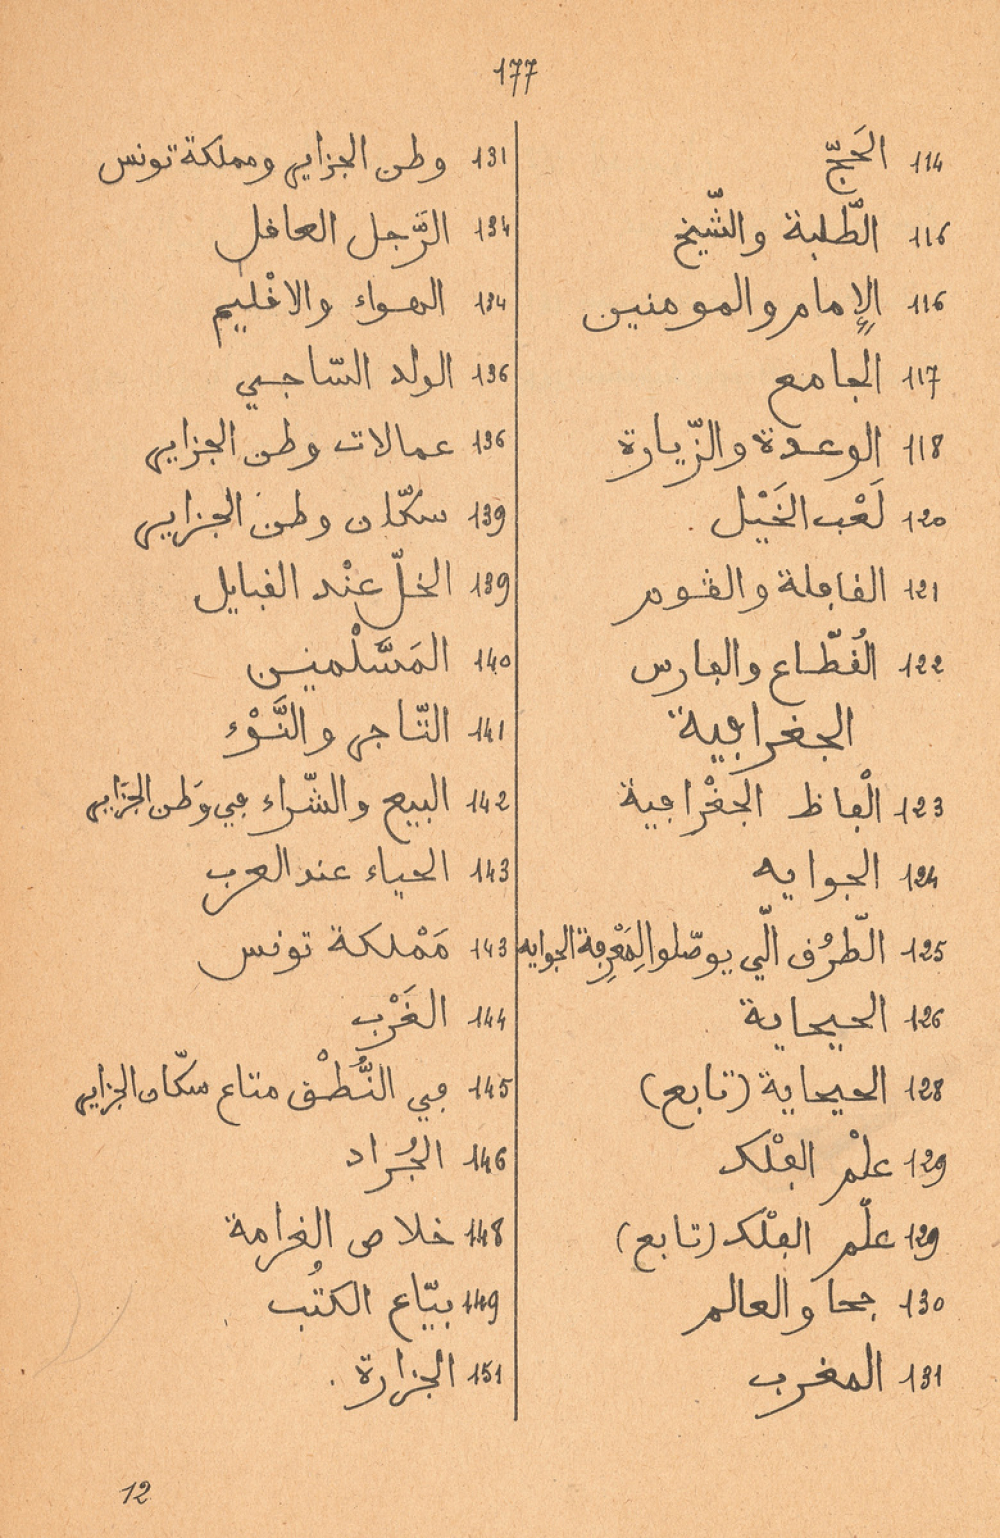 177
114 الحَجّ
116 الطّلبة والشّيخ
116 الإمام والمومنين
117 الجامع
118 الوعدة والزّيارة
120 لَعْب الخَيْل .
121 القافلة والقوم
122 القُطّاع والفارس
الجغرافية
123 الْفاظ الجغْرافية
124 الجوايه
125 الطّرُق الّي يوصّلوا لِمَعْرِفة الجوايه
126 الحيحاية
128 الحيحاية (تابع)
129 علْم الفلْك
129 علْم الفلْك (تابع)
130 جحا والعالم
131 المغرب
131 وطن الجزاير ومملكة تونس
134 الرَّجل العاقل
134 الهواء والاقْليم
136 الولد السّاجي
136 عمالات وطن الجزاير
139 سكّان وطن الجزاير
139 الخلّ عنْد القبايل
140 المَسَّلْمين
141 التّاجر والنَّوْء
142 البيع والشّراء في وَطن الجزَاير
143 الحياء عند العرب
143 مَمْلكة تونس
144 الغَرْب
145 في النُّطْق متاع سكّان الجزاير
146 الجُراد
148 خلاص الغرامة
149 بيّاع الكتُب
151 الجزارة .
12